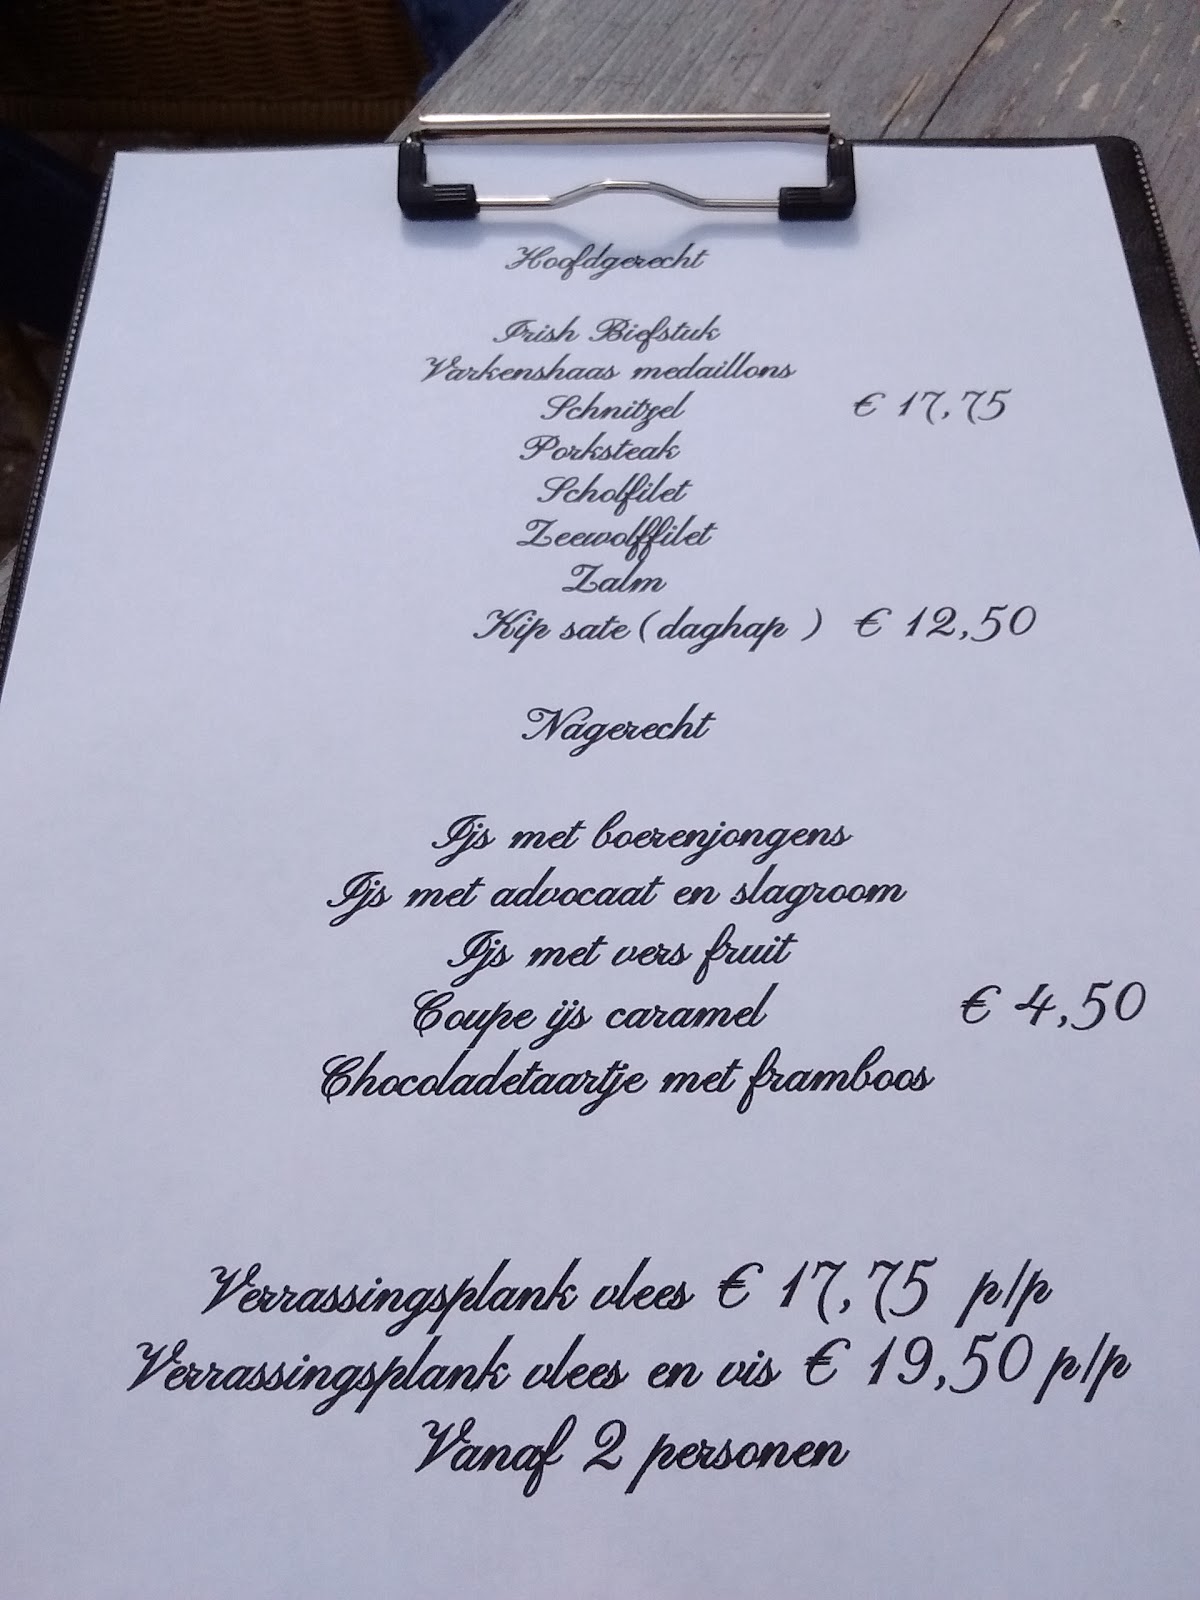 Hoofdgerecht
Irish Biefstuk
Varkenshaas medaillons
Schnitzel € 17,75
Porksteak
Scholfilet
Zeewolffilet
Zalm
Kip sate ( daghap ) € 12,50
Nagerecht
Ijs met boerenjongens
Ijs met advocaat en slagroom
Ijs met vers fruit
Coupe ijs caramel € 4,50
Chocoladetaartje met framboos
Verrassingsplank vlees € 17,75 p/p
Verrassingsplank vlees en vis € 19,50 p/p
Vanaf 2 personen